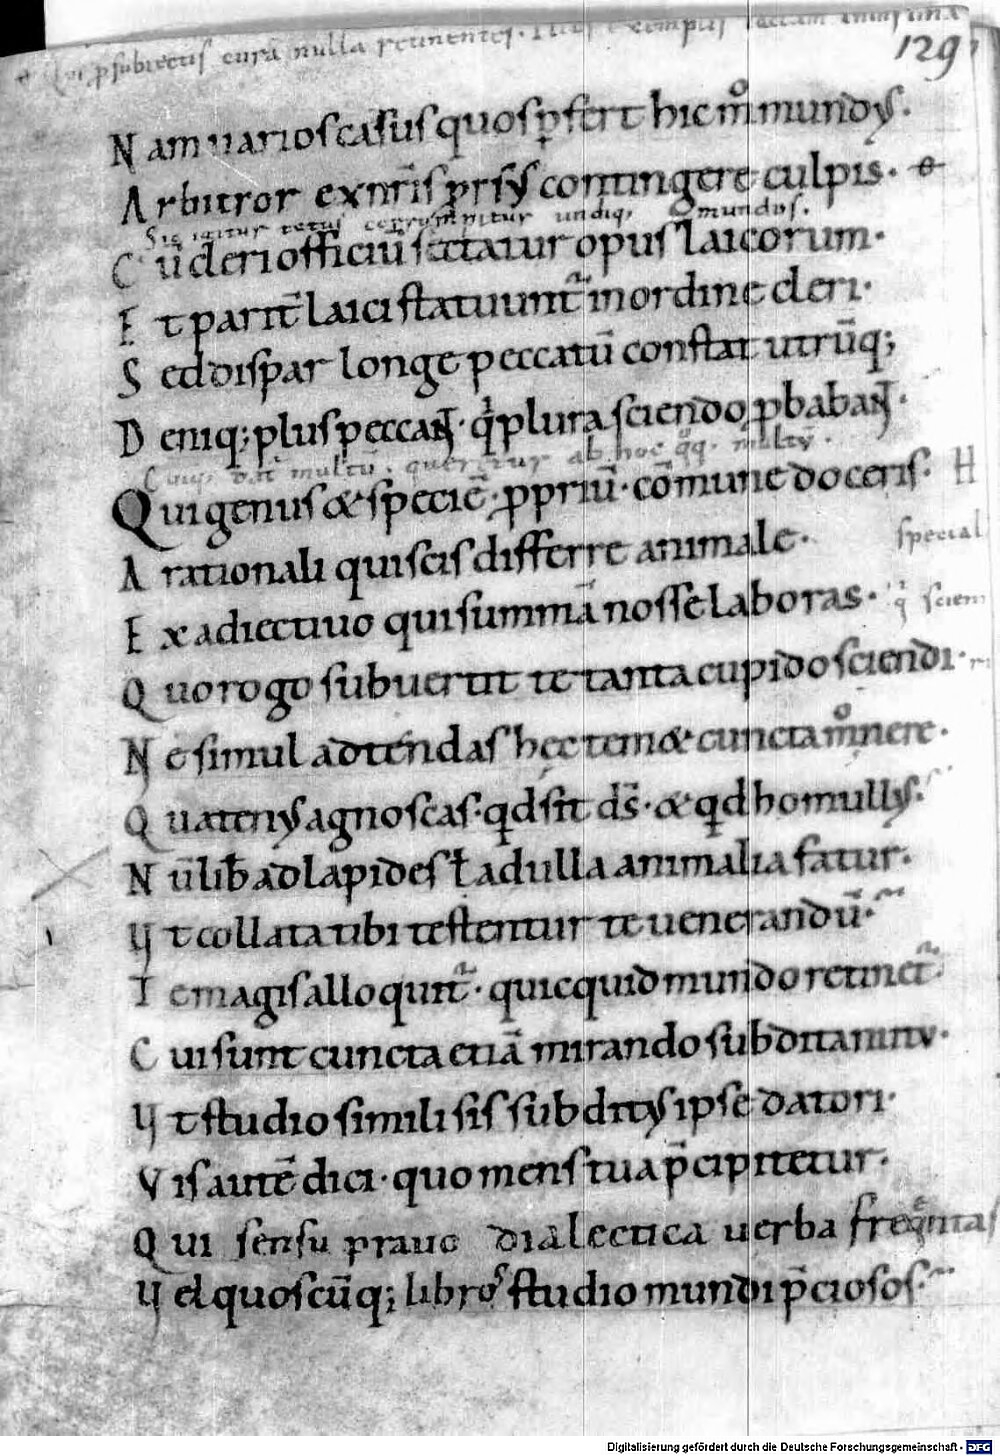 Qui p subiectis curā nulla retinentes.
129
N am uarios casus quos p fert hic mͦ mundus.
A rbitror ex nrīs prsus contingere culpis.
Sic igitur totus corrumpitur undiq, mundus.
C ū cleri officiū sectatur opus laicorum.
E t parit̄ laici statuunt᷑ in ordine cleri.
S ed dispar longe peccatū constat utrūq;
D eniq; plus peccaNT. qͥ plura sciendo pbabaNT.
Cuiq, dat̄ multū. queretur ab hoc qͦq, multū.
Q ui genus & speciē. ppriū. cōmune doceris. H
A rationali qui scis differre animale. special
E x adiectiuo qui summā nosse laboras. qͥ sciem
Q uo rogo subuertit te tanta cupido sciendi.
N e simul adtendas hec tem & cuncta mͦnere.
Q uatenus agnoscas. qd sit ds̄. & qd homullus.
N ūlib ad lapides ł ad ulla animalia fatur.
U t collata tibi testentur te uenerandū.
T e magis alloquNt᷑. quicquid mundo retinet᷑.
C ui sunt cuncta etiā mirando subdita nutu.
U t studio simili sis subditus ipse datori.
V is autē dici. quo mens tua p̄cipitetur.
Q ui sensu prauo dialectica uerba frequentas
U el quoscūq; libros studio mundi p̄ciosos.
Digitalisierung gefördert durch die Deutsche Forschungsgemeinschaft - DFG